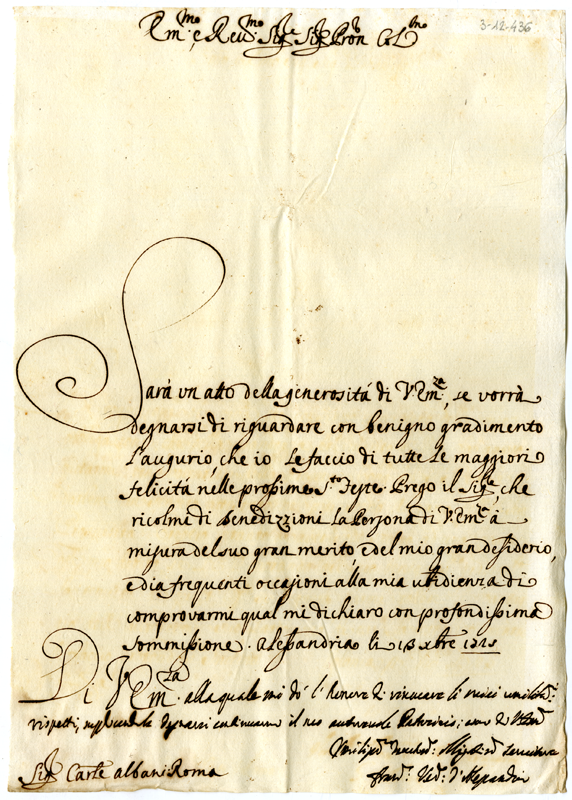 3-12-436
Em.mo e Reu.mo Sig.r Sig.r Pron Col.mo
Sarà vn atto della generosità di V. Em.za, se vorrà
degnarsi di riguardare con benigno gradimento
l'augurio, che io le faccio di tutte le maggiori
felicità nelle prossime S.te Feste. Prego il Sig.re, che
ricolmi di benedizzioni la Persona di V. Em.a à
misura del suo gran merito, e del mio gran desiderio,
e dia frequenti occasioni alla mia vbidienza di
comprovarmi qual mi dichiaro con profondissima
sommissione. Alessandria li 13 xbre
Di V. Em.za alla quale mi dò l'honore di
rispetti, continuarmi il suo
Sig.r Card.le Albani Roma